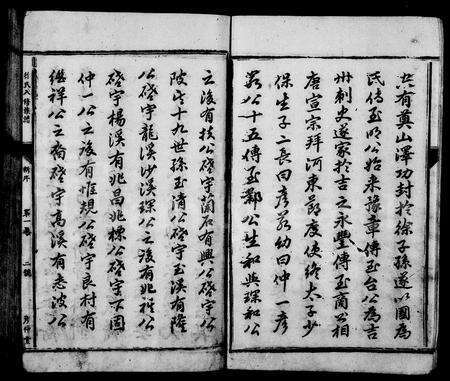 共有奠山澤功封於徐子孫遂以國為
氏傳至明公始來豫章傳至台公為吉
州刺史遂家於吉之永豐傳至商公相
唐宣宗拜河東節度使終太子少
保生子二長曰彥若幼曰仲一彥
若公十五傳至鄴公生和與琛和公
之後有技公啓宇蘭石有興公啓宇
陂十九世孫玉清公啓宇玉溪有隆
公啓宇龍溪沙溪琛公之後有兆程公
啓宇楊溪有兆昌兆標公啓宇下園
仲一公之後有惟規公啓宇良村有
繼祥公之裔啓宇高溪有志波公
第一卷
二號